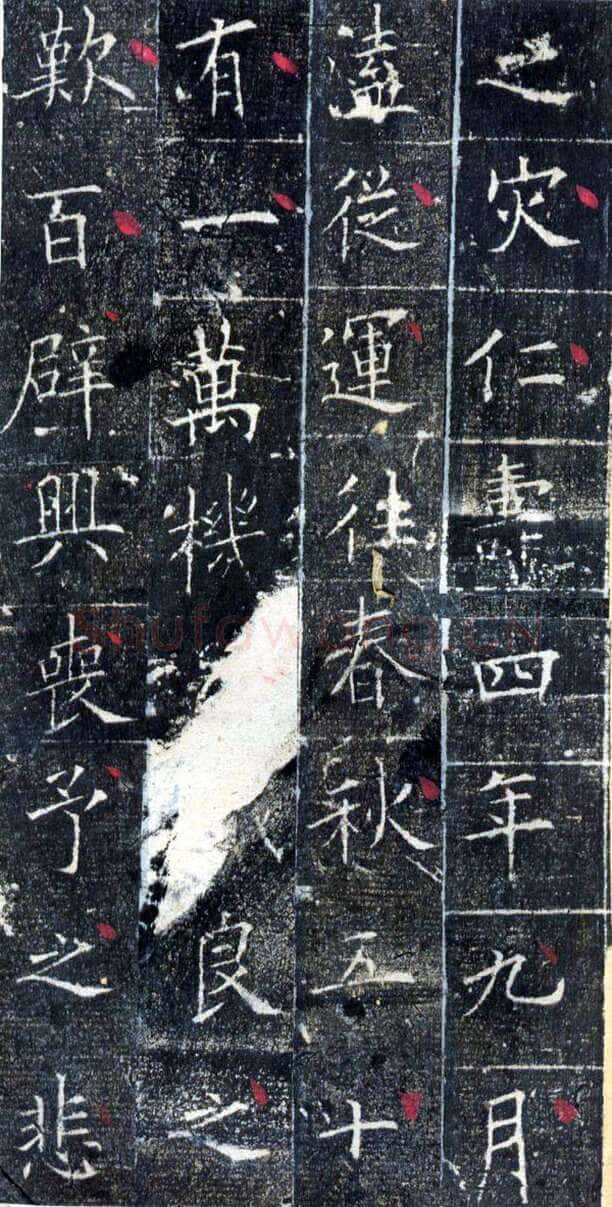 之灾仁壽四年九月
溘從運往春秋五十
有一萬機良之
歎百辟興喪予之悲
Shufawang.CN